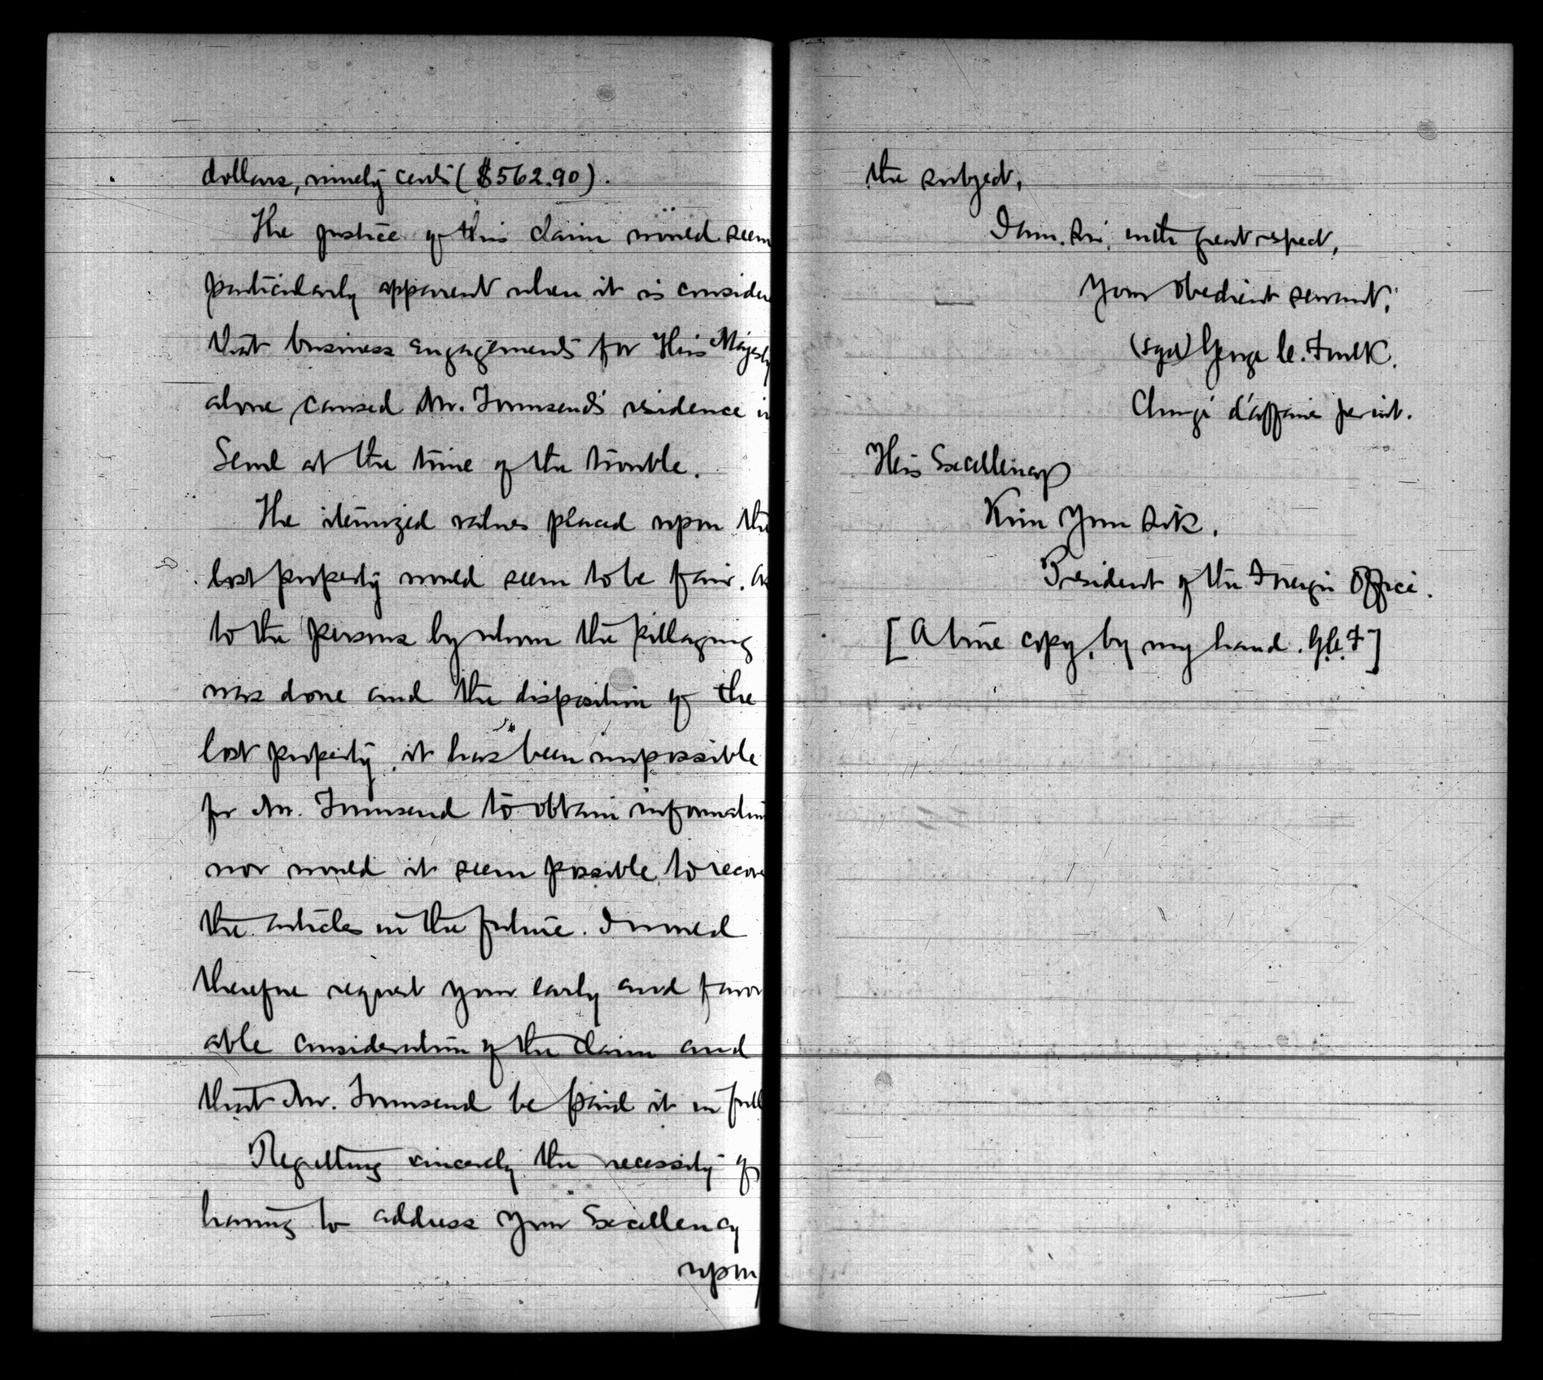 dollars, ninety cents ($562.90).
The justice of this claim would seem
particularly apparent when it is consider
that business engagements for His Majesty
alone, caused Mr. Townsend's residence in
Seoul at the time of the trouble.
The itemized values placed upon the
lost property would seem to be fair. As
to the persons by whom the pillaging
was done and the disposition of the
lost property, it has been impossible
for Mr. Townsend to obtain information
nor would it seem possible to recov
the articles in the future. I would
therefore request your early and favor
able consideration of the claim and
that Mr. Townsend be paid it in full
Regretting sincerely the necessity of
having to address Your Excellency
upon
the subject,
I am, Sir, with great respect,
Your obedient servant,
(sgd) George C. Foulk.
Chargé d'affaires per int.
His Excellency
Kim Yun Sik.
President of the Foreign Office.
[A true copy, by my hand. G.C.F]